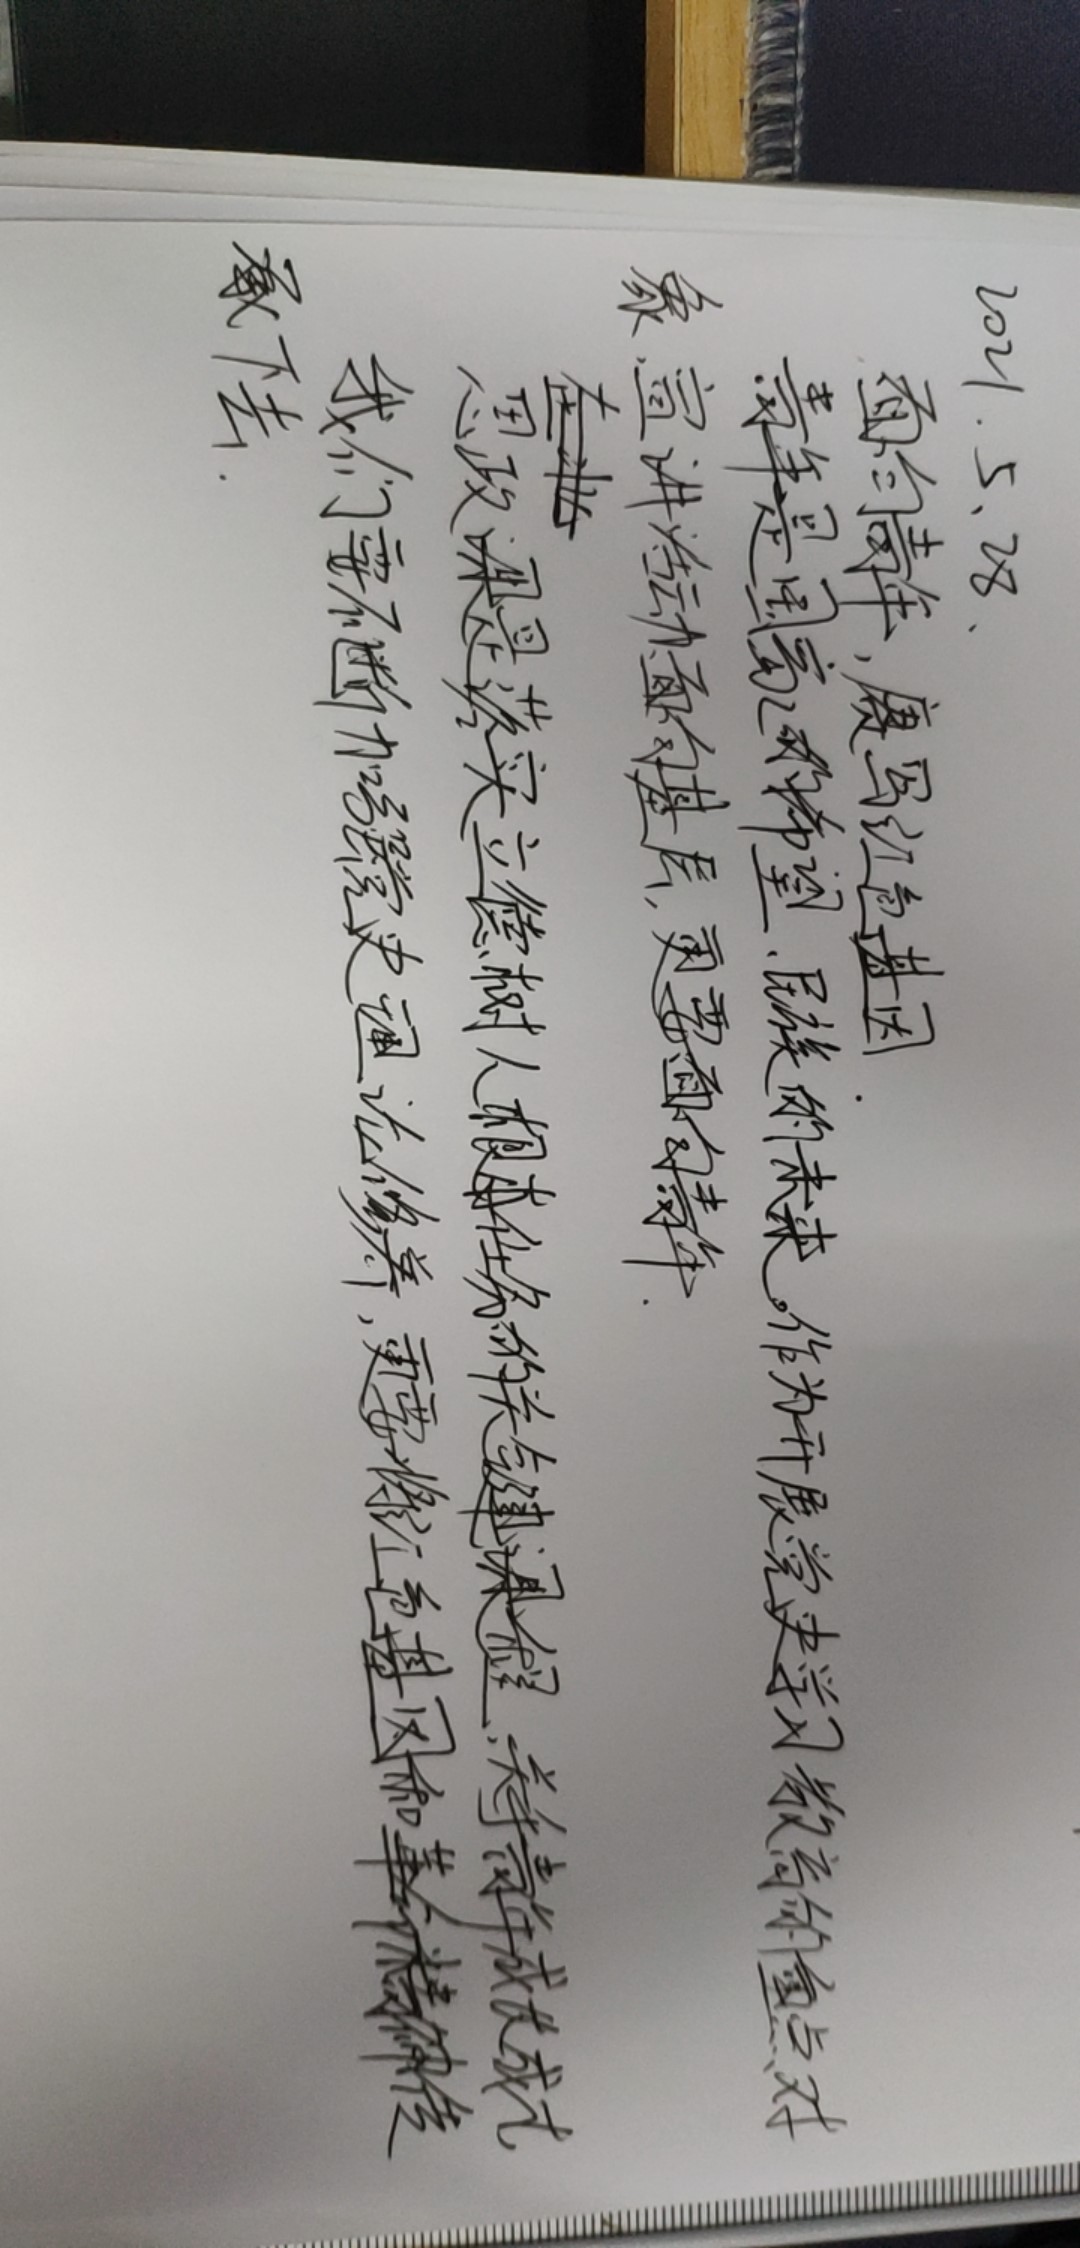 2021.5.28.
面向青年,赓写红色基因.
青年是国家的希望、民族的未来。作为开展党史学习教育的重点对
象,宣讲活动面向基层,更要面向青年.
思政课是落实立德树人根本任务的关键课程,关乎青年成长成才
我们要不断加强党史理论修养,更要将红色基因和革命精神传
承下去.